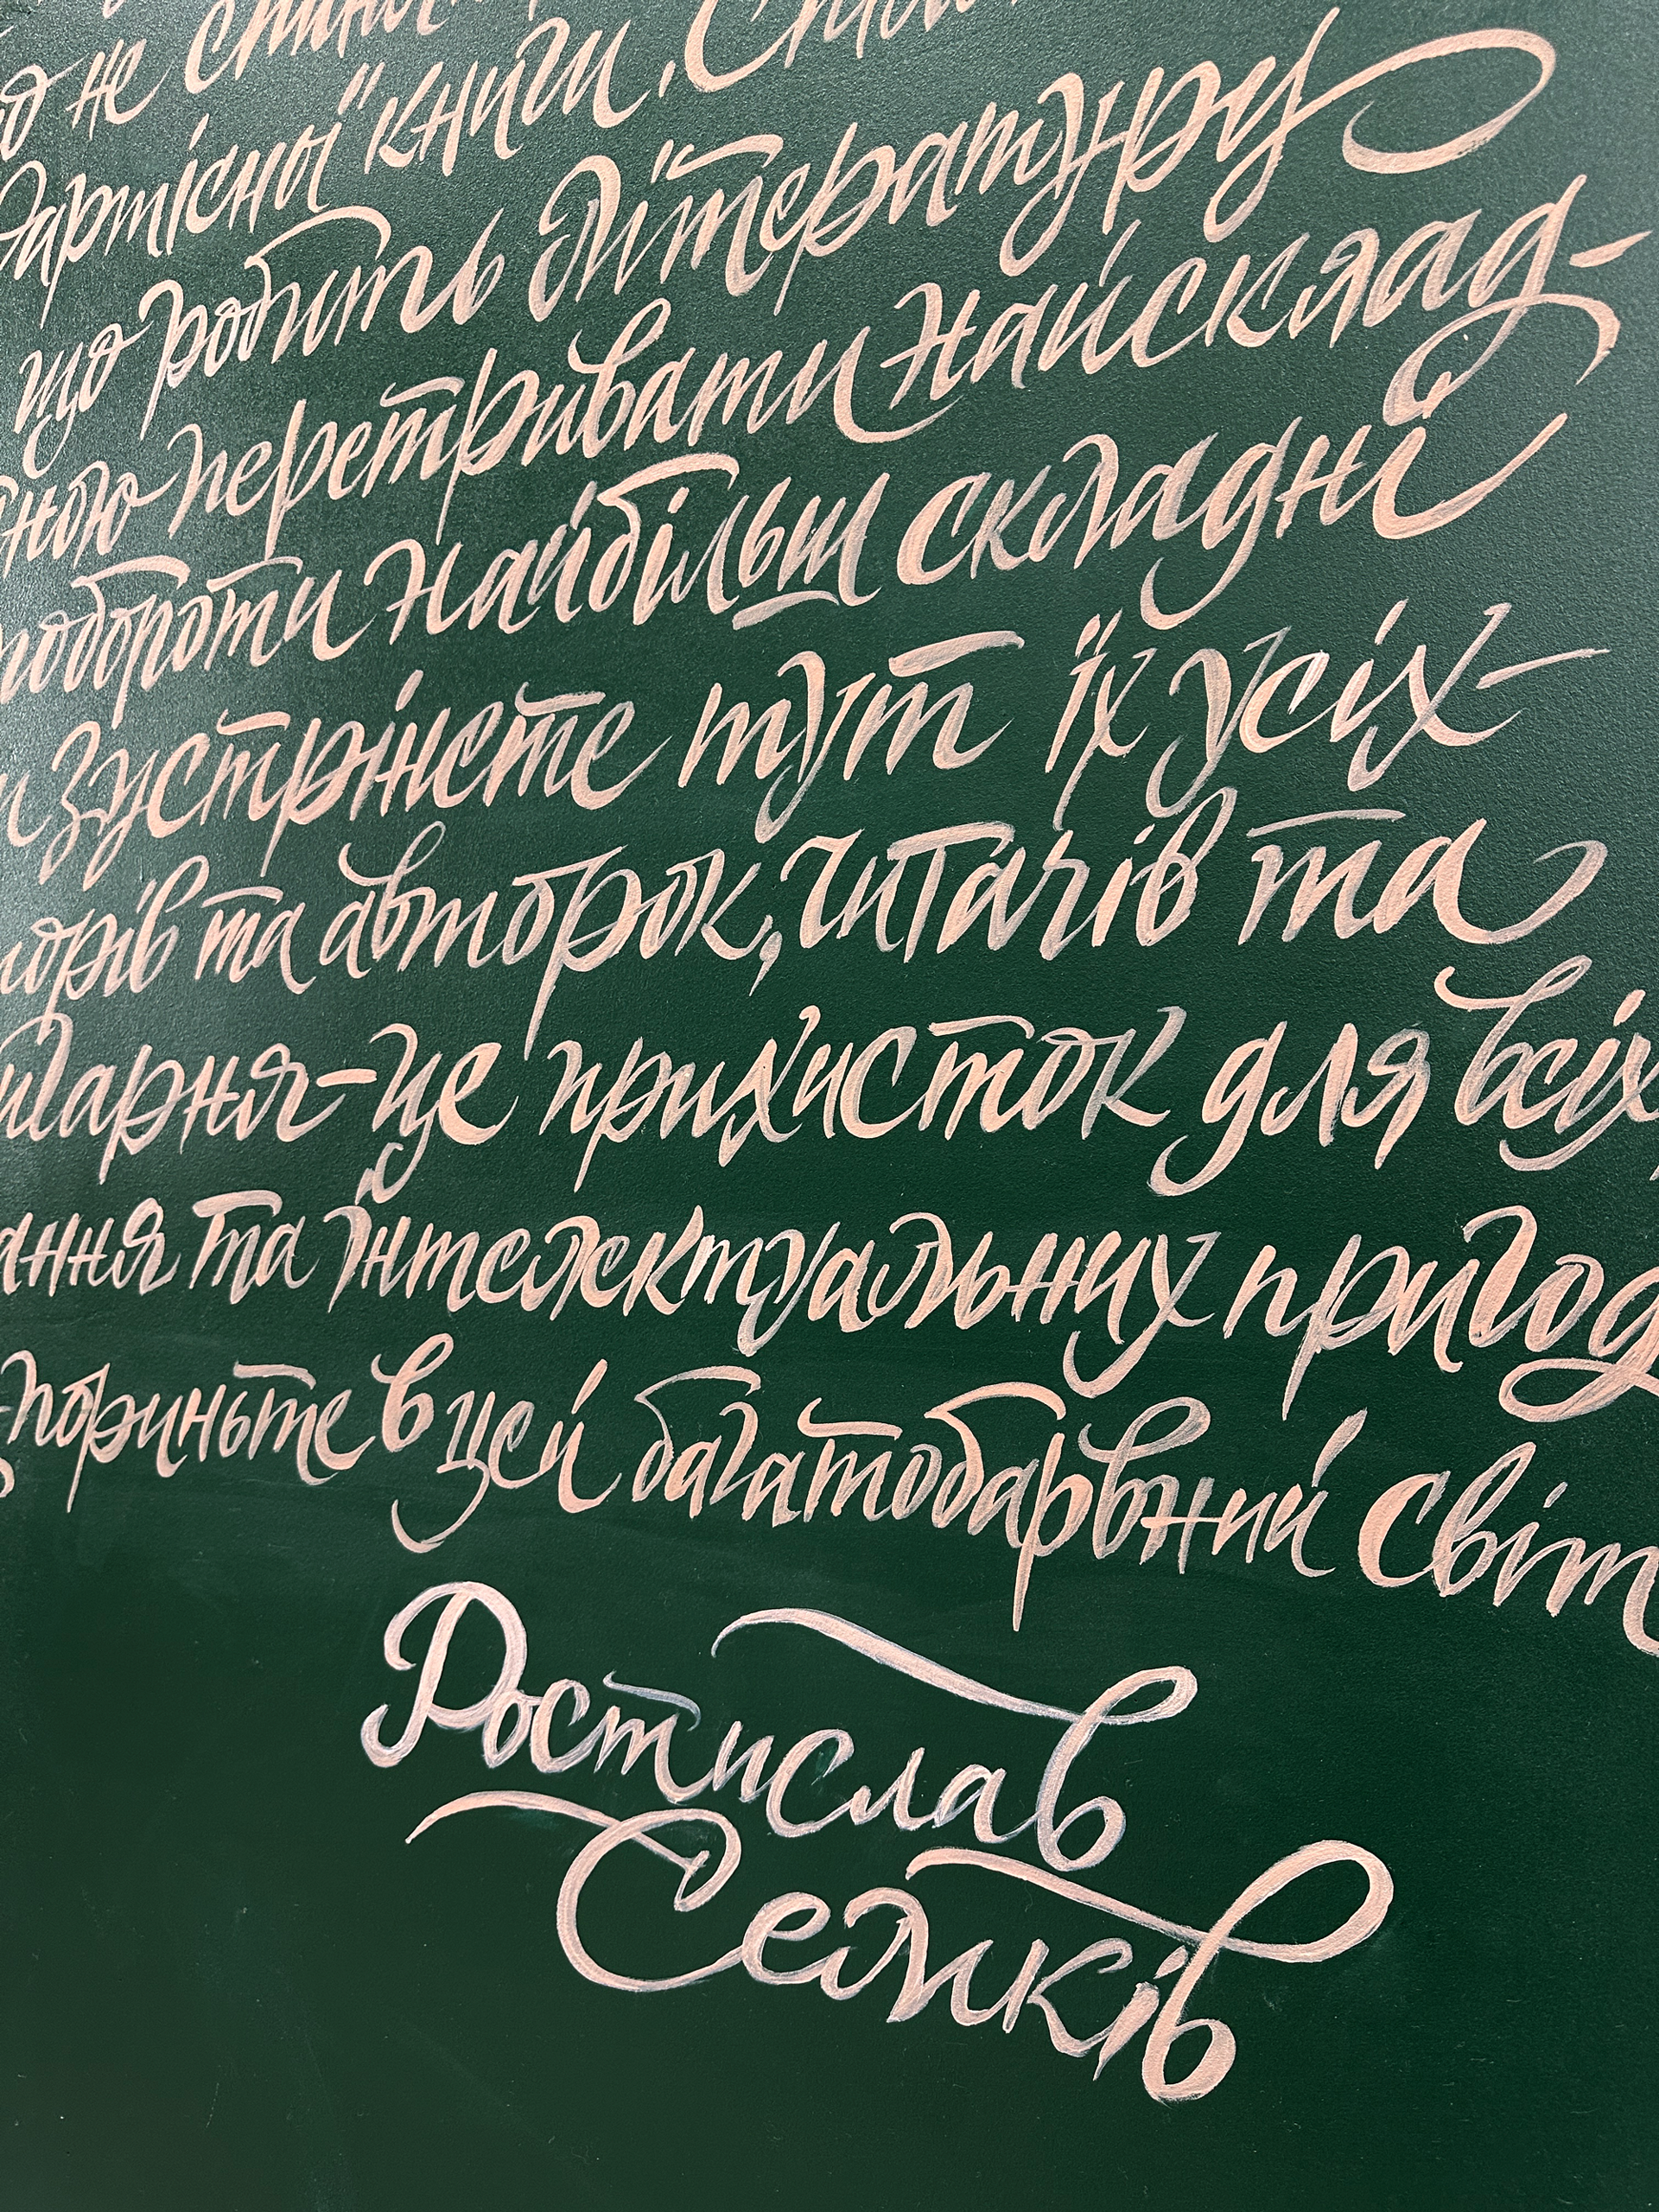 не
вартісної книги.
що робить літературу
перетривати найсклад-
повороти найбільш складні
зустрінете тут їх усіх-
торів та авторок, читачів та
гарня-це прихисток для всіх,
ання та інтелектуальних пригод
пориньте в цей багатобарвний світ
Ростислав
Семків